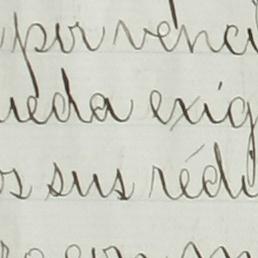 por venci
ueda exig
os sus rédi